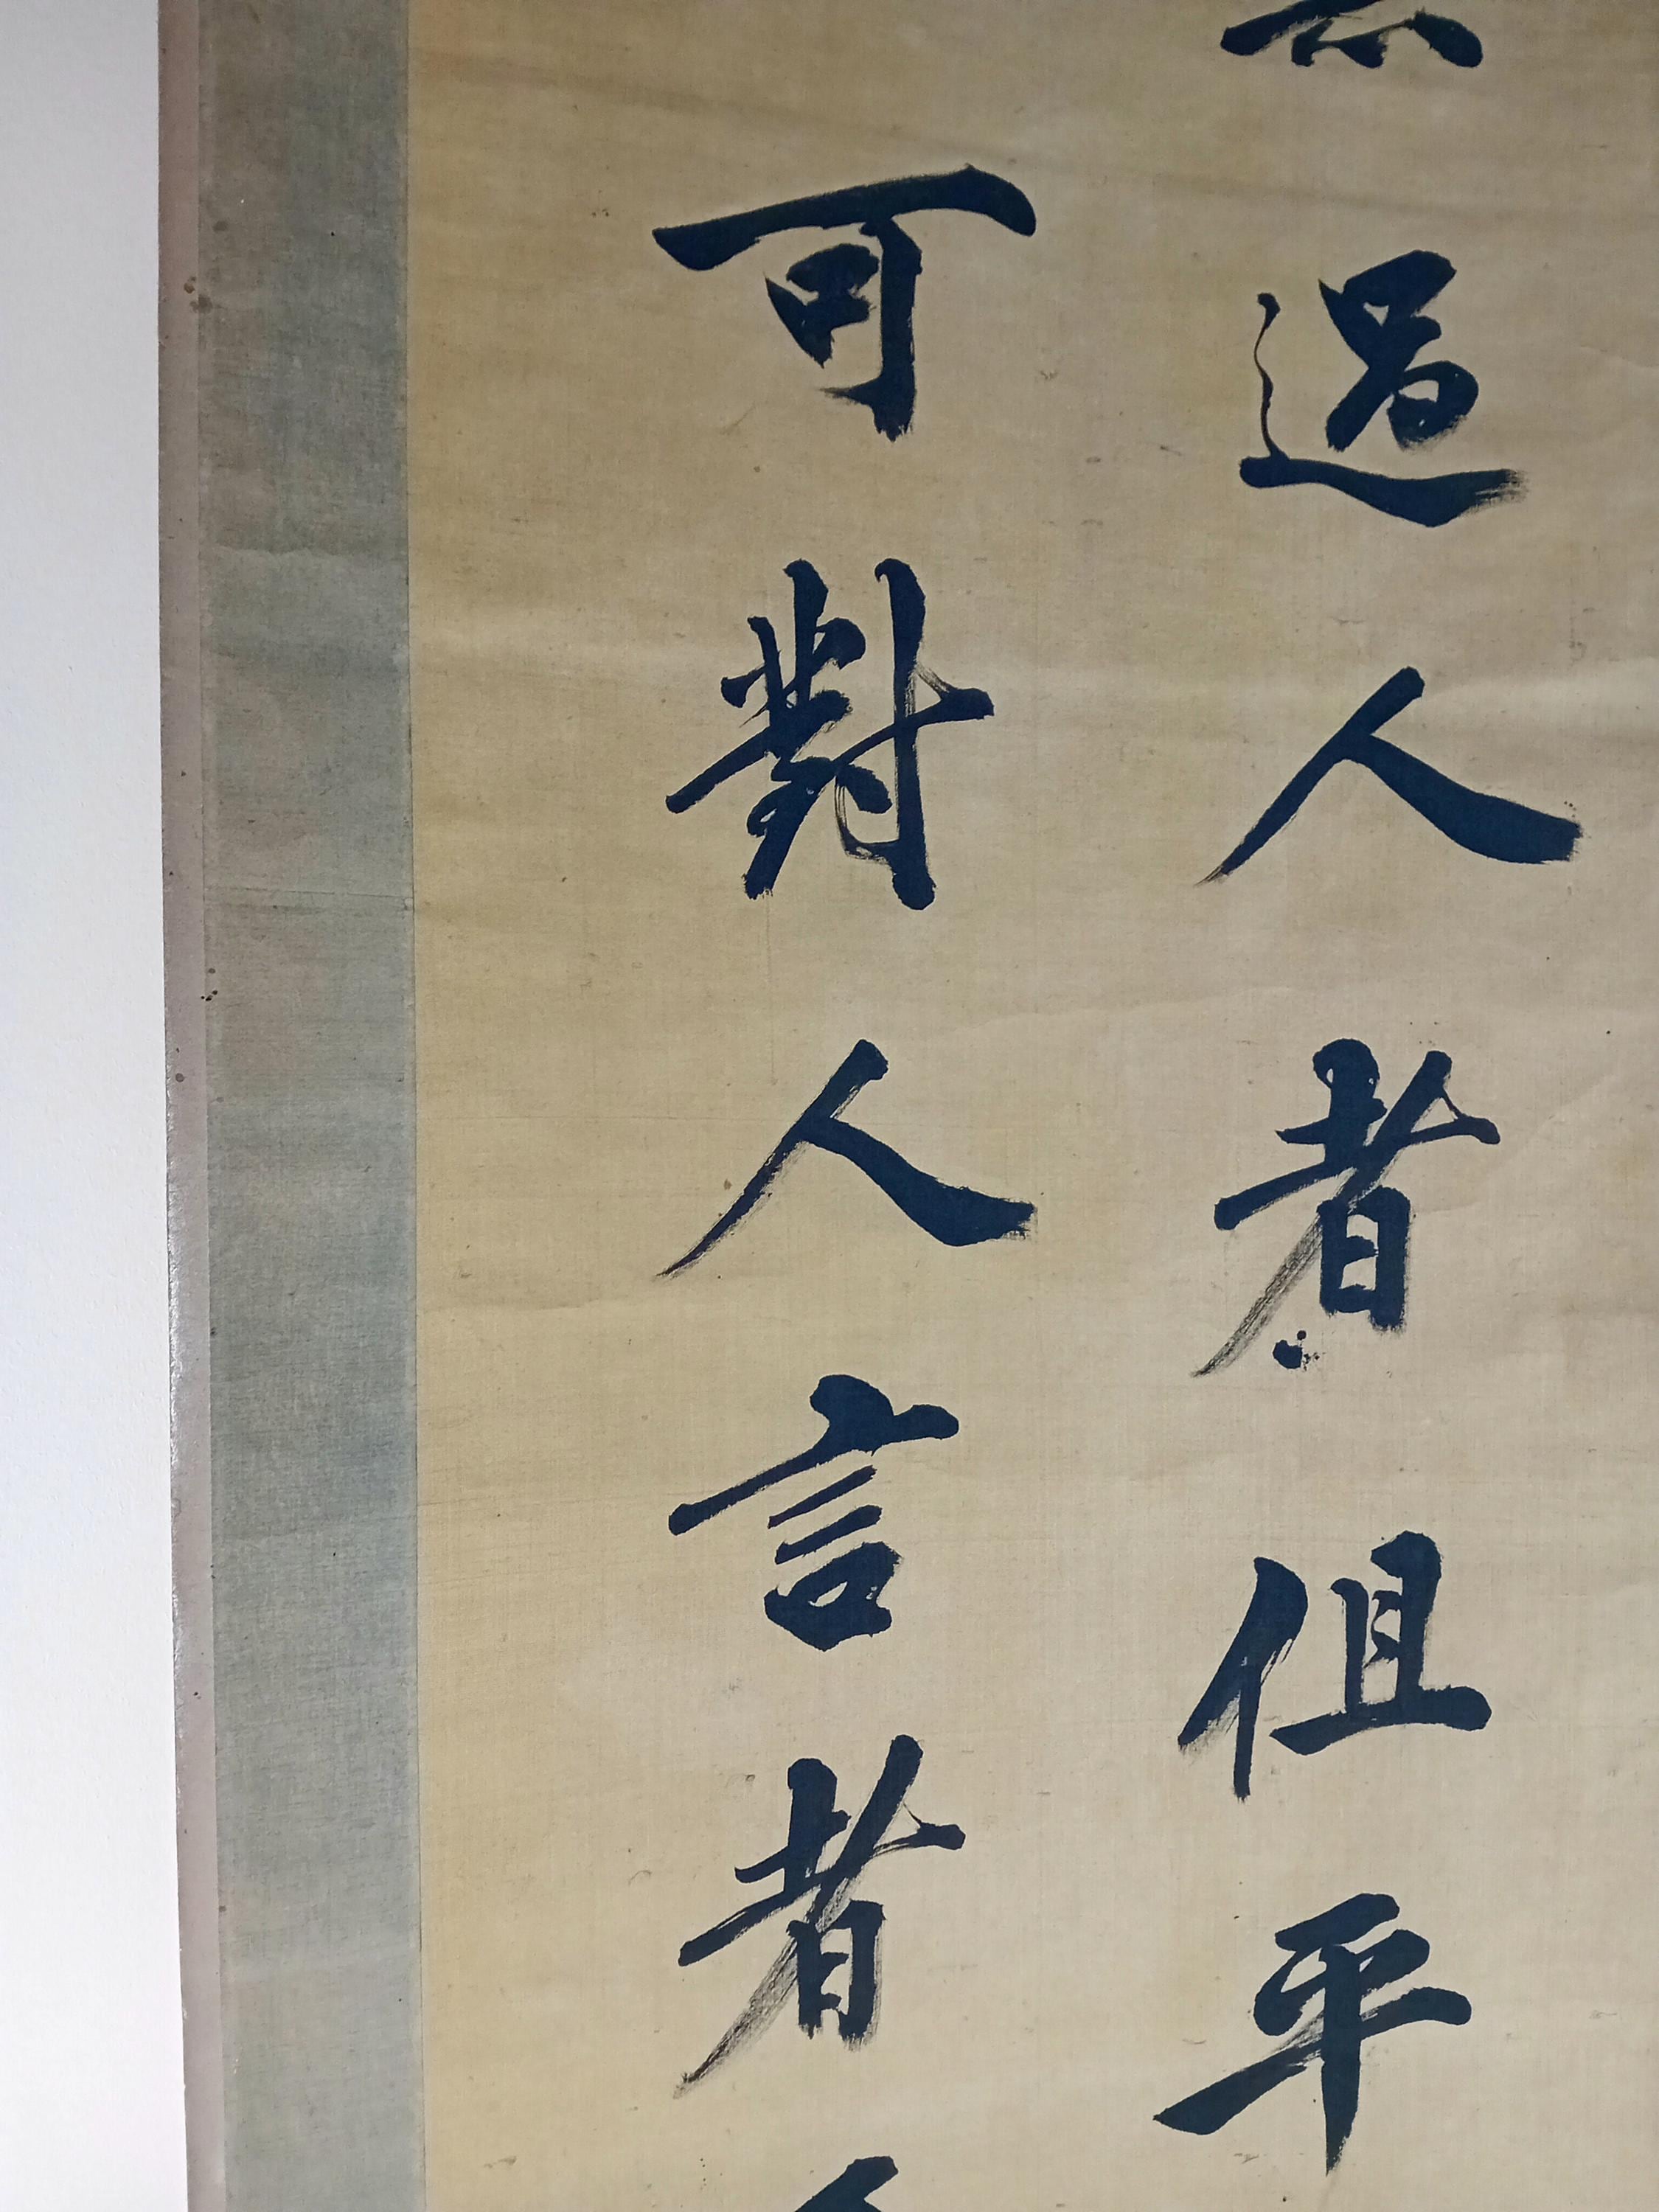 過人者但平
可對人言者